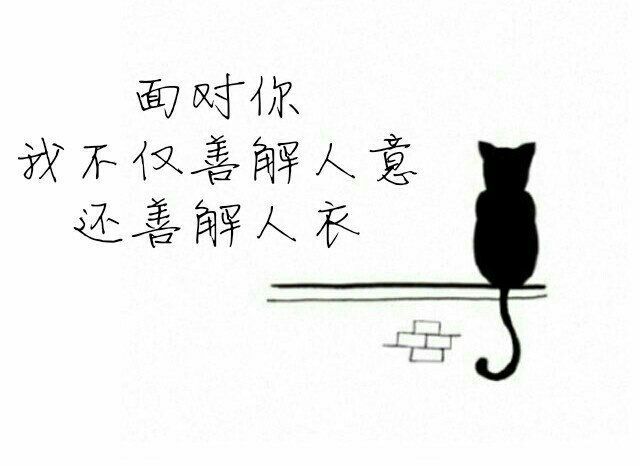 面对你
我不仅善解人意
还善解人衣